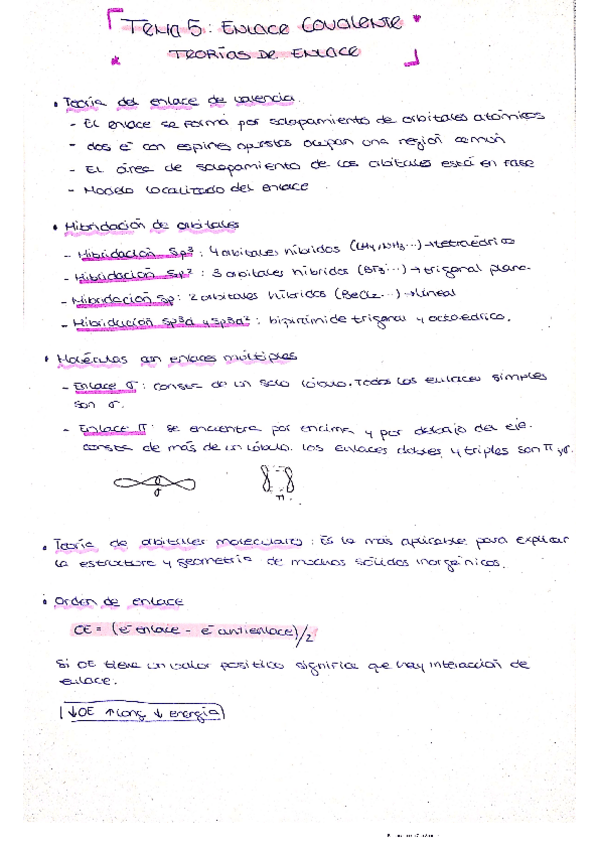 TEMA 5: ENLACE COVALENTE
TEORÍAS DE ENLACE
• Teoría del enlace de valencia.
- El enlace se forma por solapamiento de orbitales atómicos
- dos e⁻ con espines opuestos ocupan una región común
- El área de solapamiento de los orbitales está en fase
- Modelo localizado del enlace
• Hibridación de orbitales
- Hibridación Sp³: 4 orbitales híbridos (CH4, NH3...) → tetraédrico
- Hibridación Sp²: 3 orbitales híbridos (BF3...) → trigonal plano.
- Hibridación Sp: 2 orbitales híbridos (BeCl2...) → lineal
- Hibridación Sp3d y Sp3d²: bipirámide trigonal y octaédrico.
• Moléculas con enlaces múltiples
- Enlace σ: consta de un solo lóbulo. Todos los enlaces simples
son σ.
- Enlace π: se encuentra por encima y por debajo del eje.
consta de más de un lóbulo. Los enlaces dobles y triples son π y σ.
σ
π
• Teoría de orbitales moleculares: Es la más aplicable para explicar
la estructura y geometría de muchos sólidos inorgánicos.
• Orden de enlace
OE = (e⁻ enlace - e⁻ antienlace)/2
Si OE tiene un valor positivo significa que hay interacción de
enlace.
↓OE ↑Long ↓ energía